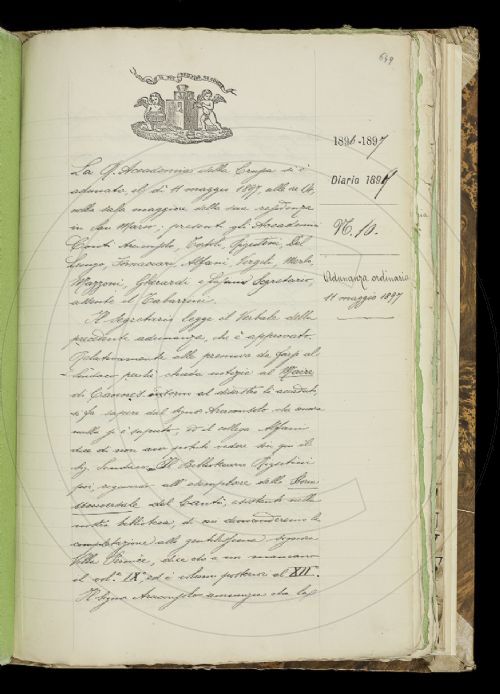 649
1896-1897
Diario 1897
N. 10.
Adunanza ordinaria
11 maggio 1897
La R. Accademia della Crusca si è
adunata, il dì 11 maggio 1897, alle ore
nella sala maggiore della sua residenza
in San Marco; presenti gli Accademici
Conti Arciconsolo, Tortoli, Rigutini, Del
Lungo, Tommasini, Alfani, Vergili, Merlo,
Mazzoni, Gherardi e Segretario,
assente il Tabarrini.
Il Segretario legge il Verbale della
precedente adunanza, che è approvato.
Relativamente alle premure da farsi al
Sindaco perché chieda notizie al Maire
di Cannes intorno al
si fa sapere dal Signor Arciconsolo che ancora
nulla si è saputo, ed il collega Alfani
dice di non aver potuto vedere fin qui il
Sig. Sindaco. Il Bibliotecario Rigutini
poi, riguardo all'esemplare della Storia
universale del Cantù, esistente nella
nostra biblioteca, di cui domanderemo la
completazione alla gentilissima signora
Villa Pernice, dice che a noi mancano
il vol.º IX.º ed i volumi posteriori al XII.º.
Il Signor Arciconsolo annunzia che la